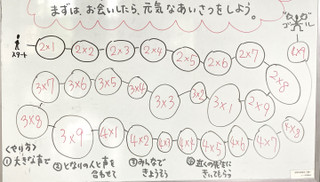 まずは、お会いしたら、元気なあいさつをしよう。
スタート
2×1 2×2 2×3 2×4 2×5 2×6 2×7 2×8 2×9
3×1 3×2 3×3 3×4 3×5 3×6 3×7 3×8 3×9
4×1 4×2 4×3 4×4 4×5 4×6 4×7 4×8 4×9
ゴール
くやり方>
①大きな声で
②となりの人と声を合わせて
③みんなできょうそう